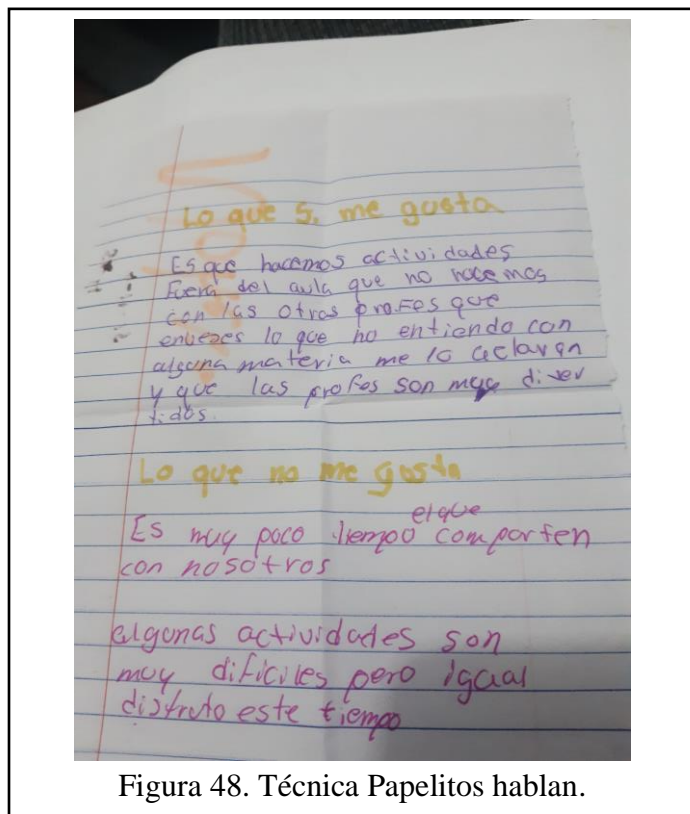 Lo que si me gusta
Es que hacemos actividades
Fuera del aula que no hacemos
con las otras profes que
enveses lo que no entiendo con
alguna materia me lo aclaran
y que las profes son muy diver
tidas.
Lo que no me gusta
Es muy poco tiempo el que comparten
con nosotros
algunas actividades son
muy dificiles pero igual
disfruto este tiempo
Figura 48. Técnica Papelitos hablan.